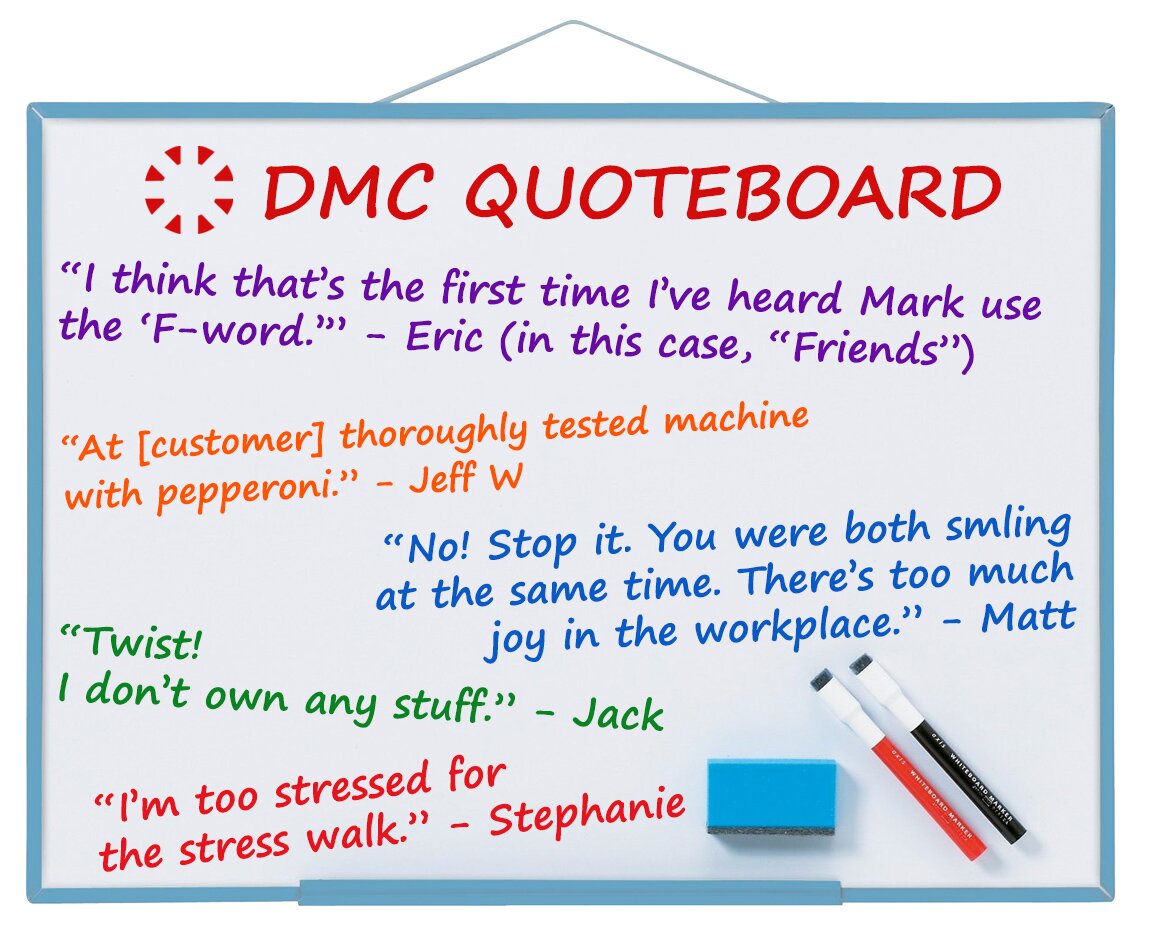 DMC QUOTEBOARD
“I think that’s the first time I’ve heard Mark use
the ‘F-word.’” - Eric (in this case, “Friends”)
“At [customer] thoroughly tested machine
with pepperoni.” - Jeff W
“No! Stop it. You were both smling
at the same time. There’s too much
joy in the workplace.” - Matt
“Twist!
I don’t own any stuff.” - Jack
“I’m too stressed for
the stress walk.” - Stephanie
axis WHITEBOARD MARKER
axis WHITEBOARD MARKER